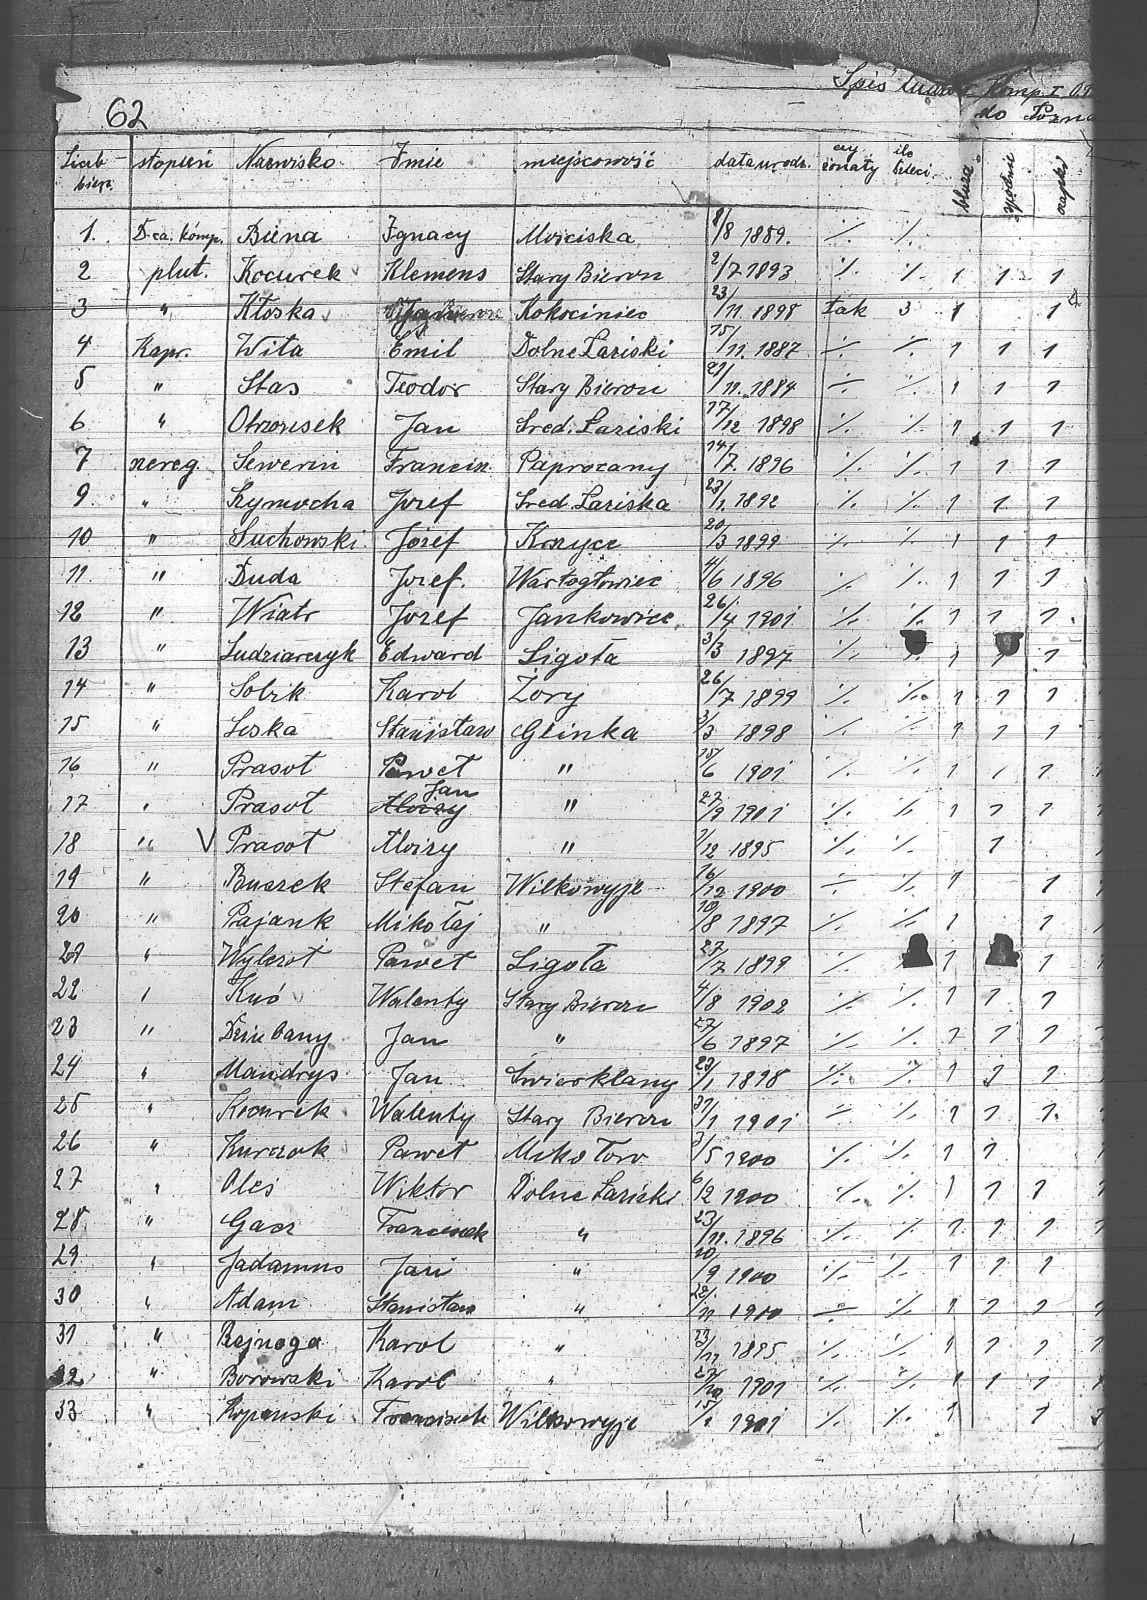 Spis ludzi Komp. I
62
do Pozna
Liczb bierz. stopień Nazwisko Imie miejscowość data urodz. czy żonaty ilo dzieci bluza spodnie czapki
1. D-ca. komp. Biena Ignacy Mościska 8/8 1889. % %
2 plut. Kocurek Klemens Stary Bieron 2/7 1893 % % 1 1 1
3 " Kłoska Kokociniec 23/11 1898 tak 3 1 1
4 Kapr. Wita Emil Dolne Laziski 15/11. 1887 % % 1 1 1
5 " Stas Teodor Stary Bieron 21/11. 1884 % % 1 1 1
6 " Obrzonsek Jan Sred. Laziski 17/12 1898 % % 1 1 1
7 szereg. Sewerin Francisz. Paprocany 14/7. 1896 % % 1 1 1
9. " Szymocha Jozef Sred. Laziska 23/1. 1892 % % 1 1 1
10 " Suchowski Józef Krzyce 20/3 1899 % % 1 1 1
11. " Duda Jozef. Wartogłowiec 4/6 1896 % % 1 1 1
12 " Wiatr Jozef Jankowice 26/4 1901 % % 1 1 1
13 " Ludziarczyk Edward Ligota 3/3 1897 % 1 1 1
14 " Sobik Karol Żory 26/7 1899 % % 1 1 1
15 " Leska Stanisław Glinka 3/3 1898 % % 1 1 1
16 " Prasoł Paweł " 15/6 1901 % % 1 1 1
17 " Prasoł Jan " 27/9 1901 % % 1 1 1
18 " V Prasoł Aloizy " 1/12 1895 % % 1
19 " Buszek Stefan Wilkowyje 16/12 1900 % % 1 1
20 " Pajank Mikołaj " 10/8 1897 % % 1 1
21 " Wylezoł Paweł Ligota 27/7 1899 % 1 1
22 " Kuś Walenty Stary Bieron 4/8 1902 % % 1 1 1
23 " Dziubany Jan " 27/6 1897 % % 1 1 1
24 " Mandrys Jan Swierklany 23/1 1898 % % 1 1 1
25 " Kocurek Walenty Stary Bieron 31/1 1901 % % 1 1 1
26 " Kurczok Paweł Mikołow 3/5 1900 % % 1 1
27 " Oleś Wiktor Dolne Laziski 6/2 1900 % % 1 1 1
28 " Gacz Franciszek " 23/11. 1896 % % 1 1 1
29 " Jadamus Jan " 10/9 1900 % % 1 1 1
30 " Adam Stanisław " 22/11 1900 % % 1 1 1
31 " Bejnoga Karol " 13/11 1895 % % 1 1 1
32 " Borowski Karol " 27/10 1901 % % 1 1 1
33 " Kopanski Franciszek Wilkowyje 1901 % % 1 1